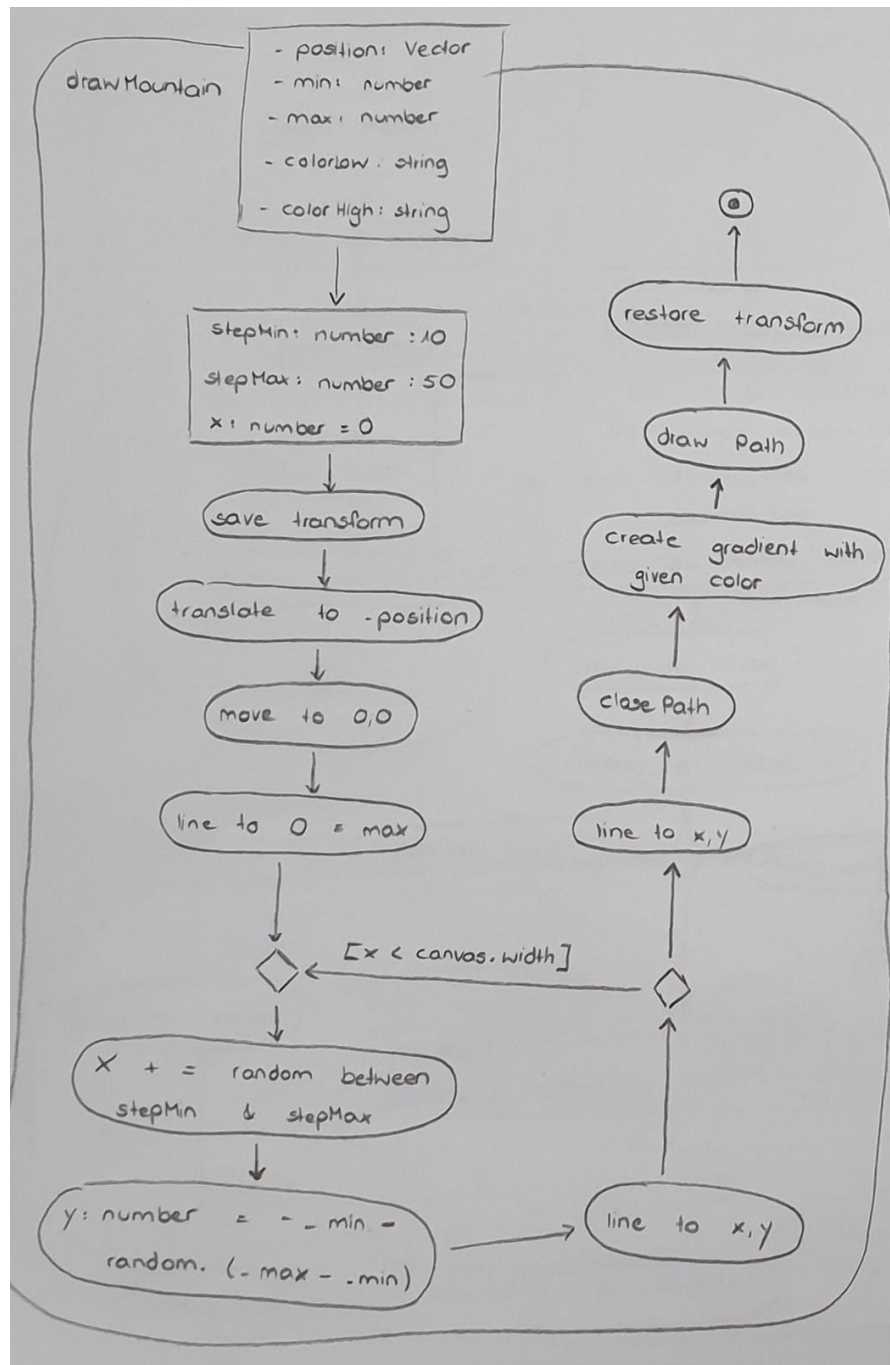 drawMountain
- position: Vector
- min: number
- max: number
- colorLow: string
- colorHigh: string
stepMin: number : 10
stepMax: number : 50
x: number = 0
save transform
translate to -position
move to 0,0
line to 0 = max
[x < canvas.width]
X + = random between
stepMin & stepMax
y: number = - _ min -
random. (_ max - . min)
line to x,y
line to x,y
close Path
create gradient with
given color
draw Path
restore transform